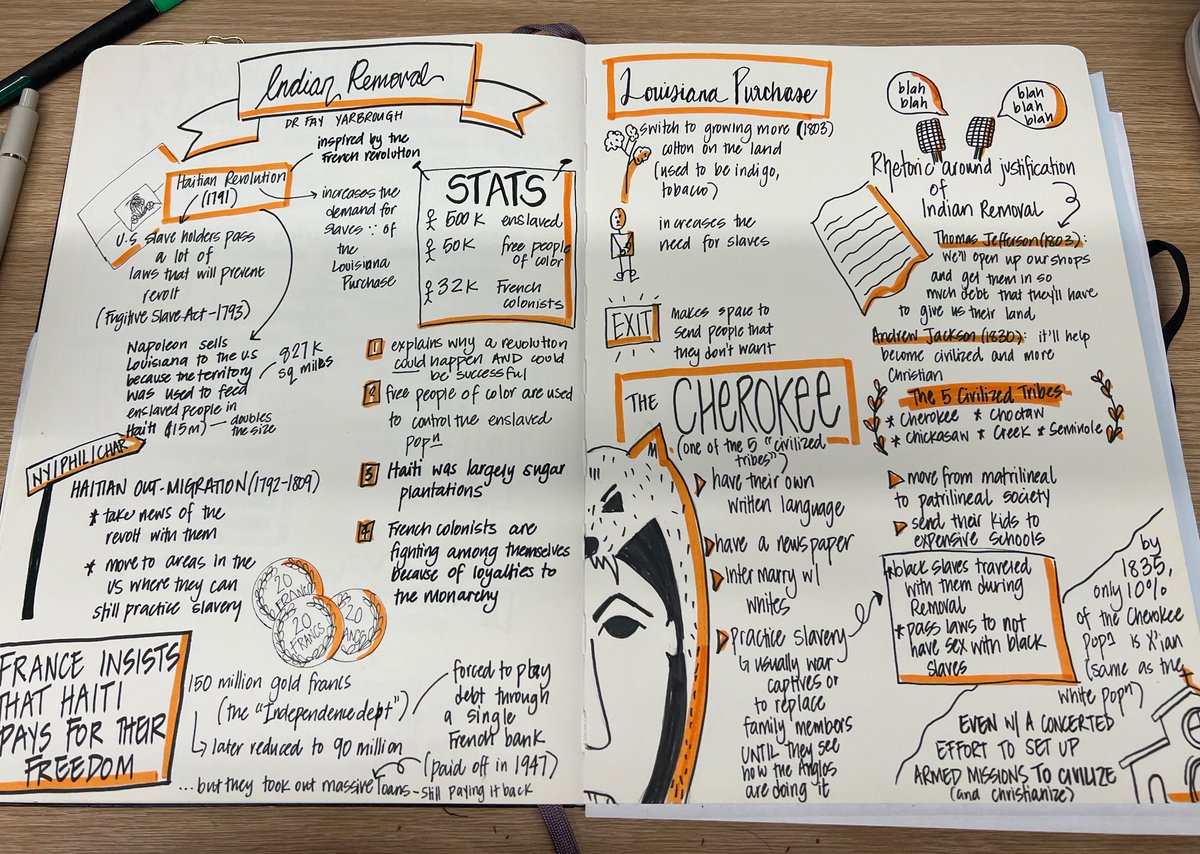 Indian Removal
DR FAY YARBROUGH
Haitian Revolution
(1791)
inspired by the
French revolution
U.S. slave holders pass
a lot of
laws that will prevent
revolt
(Fugitive Slave Act-1793)
increases the
demand for
slaves ∵ of
the
Louisiana
Purchase
Napoleon sells
Louisiana to the US
because the territory
was used to feed
enslaved people in
Haiti ($15m) — doubles
the size
827K
sq miles
STATS
500K enslaved
50K free people
of color
32K French
colonists
1 explains why a revolution
could happen AND could
be successful
2 free people of color are used
to control the enslaved
popn
3 Haiti was largely sugar
plantations
4 French colonists are
fighting among themselves
because of loyalties to
the monarchy
NY|PHIL|CHAR
HAITIAN OUT-MIGRATION (1792-1809)
* take news of the
revolt with them
* move to areas in the
US where they can
still practice slavery
20
FRANCS
20
FRANCS
20
FRANCE INSISTS
THAT HAITI
PAYS FOR THEIR
FREEDOM
150 million gold francs
(the "Independence dept")
later reduced to 90 million
forced to play
debt through
a single
French bank
(paid off in 1947)
...but they took out massive loans - still paying it back
Louisiana Purchase
switch to growing more (1803)
cotton on the land
(used to be indigo,
tobacco)
increases the
need for slaves
EXIT
makes space to
send people that
they don't want
THE CHEROKEE
(one of the 5 "civilized
tribes")
have their own
written language
have a newspaper
intermarry w/
whites
practice slavery
usually war
captives or
to replace
family members
UNTIL they see
how the Anglos
are doing it
blah
blah
blah
blah
blah
Rhetoric around justification
of
Indian Removal
Thomas Jefferson (1803):
we'll open up our shops
and get them in so
much debt that they'll have
to give us their land
Andrew Jackson (1830): it'll help
become civilized and more
Christian
The 5 Civilized Tribes
* Cherokee * Choctaw
* Chickasaw * Creek * Seminole
move from matrilineal
to patrilineal society
send their kids to
expensive schools
* black slaves traveled
with them during
Removal
* pass laws to not
have sex with black
slaves
by
1835,
only 10%
of the Cherokee
popn is X'ian
(same as the
white popn)
EVEN W/ A CONCERTED
EFFORT TO SET UP
ARMED MISSIONS TO CIVILIZE
(and christianize)